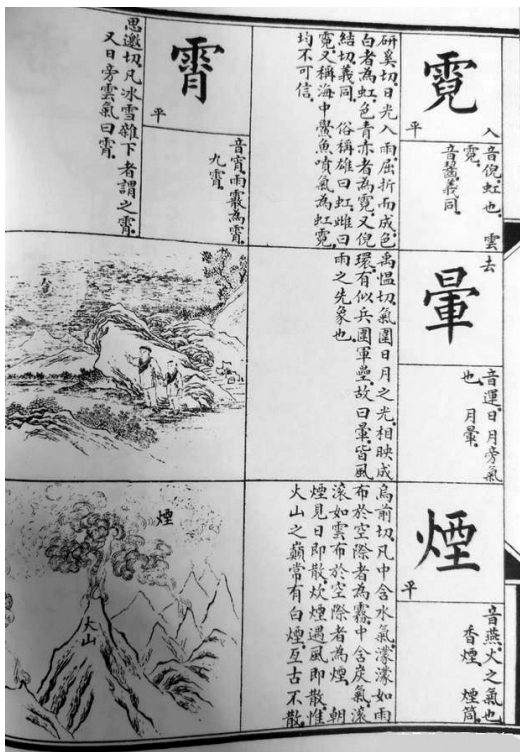 霓
平
入
音倪.虹也. 雲
霓.
音齧.義同.
研奚切.日光入雨.屈折而成.色
白者為虹.色青赤者為霓.又倪
結切.義同. 俗稱雄曰虹.雌曰
霓.又稱海中鱟魚噴氣為虹霓.
均不可信.
霄
平
音宵.雨霰為霄.
九霄.
思邀切.凡冰雪雜下者謂之霄.
又日旁雲氣曰霄.
去
暈
音運.日月旁氣
也. 月暈.
禹慍切.氣圍日月之光.相映成
環.有似兵圍軍壘.故曰暈.皆風
雨之先象也.
煙
平
音燕.火之氣也.
香煙. 煙筒.
烏前切.凡中含水氣.濛濛如雨
布於空際者為霧.中含炭氣.滾
滾如雲布於空際者為煙. 朝
煙見日即散.炊煙遇風即散.惟
火山之巔常有白煙.亙古不散
煙
火山